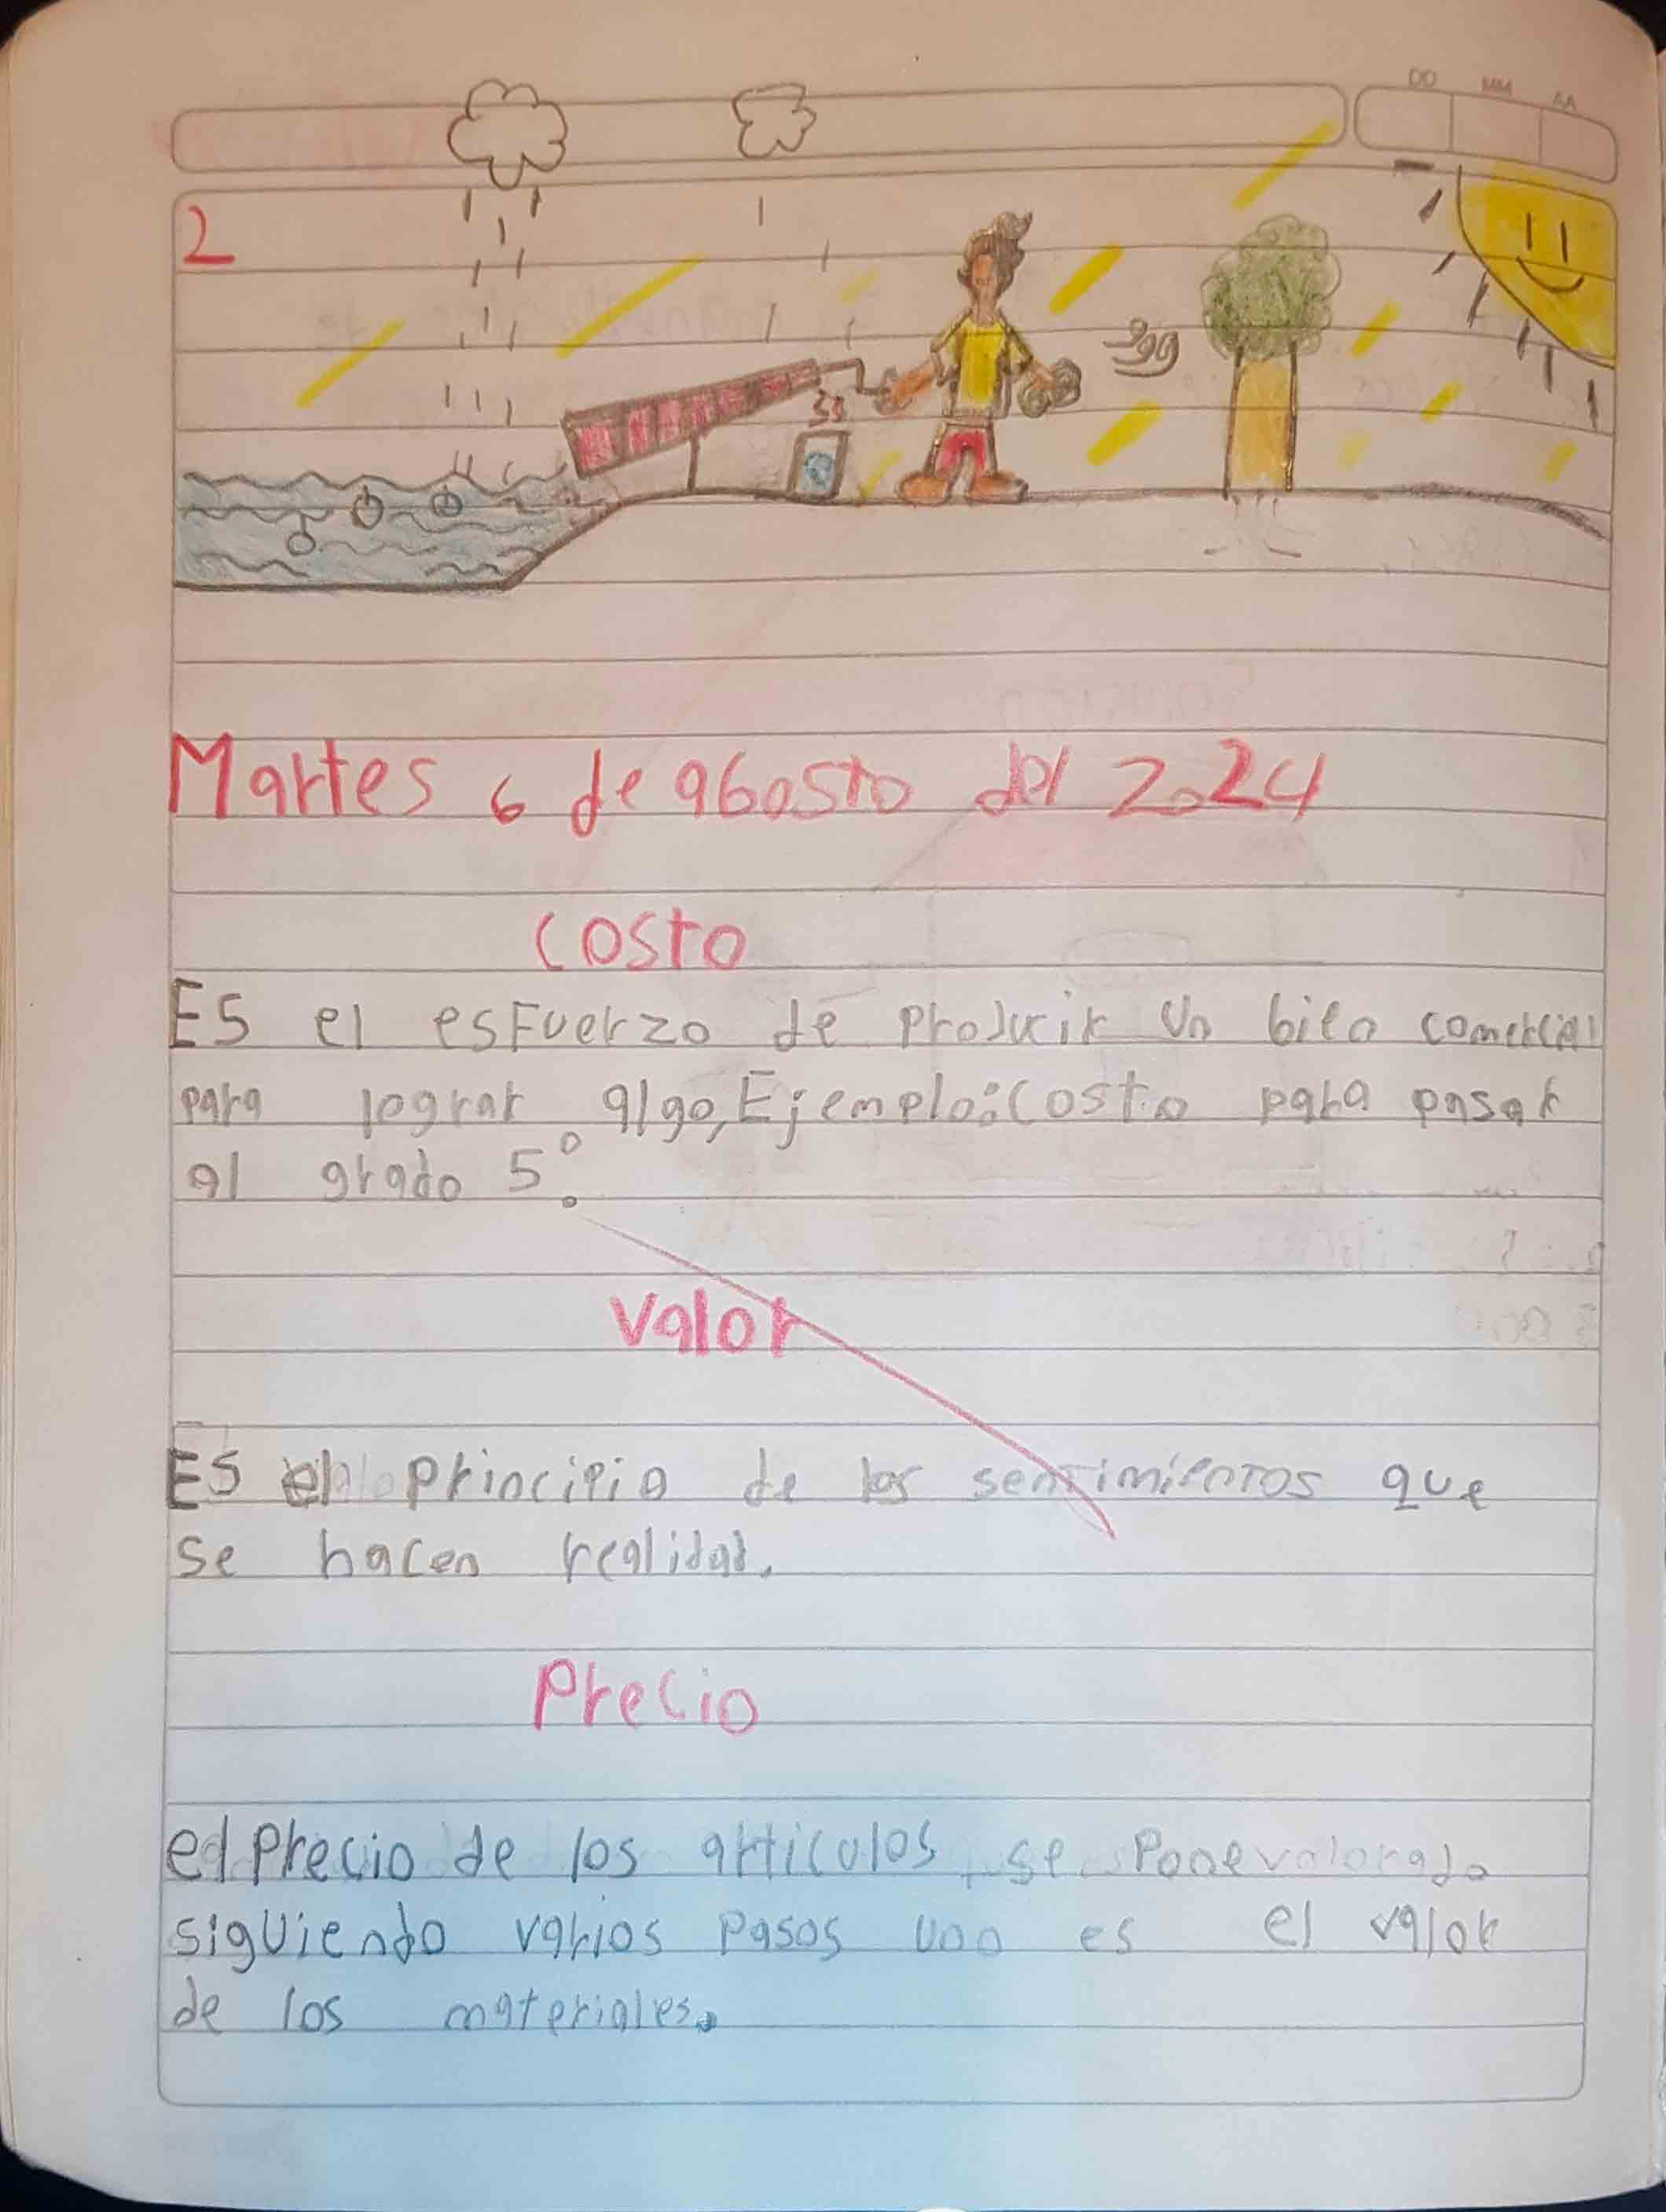 DD MM AA
2
Martes 6 de agosto del 2024
Costo
Es el esfuerzo de producir un bien comercial
para lograr algo, Ejemplo: Costo para pasar
al grado 5°.
Valor
Es el principio de los sentimientos que
se hacen realidad.
Precio
el precio de los articulos, se pone valorado
siguiendo varios pasos uno es el valor
de los materiales.